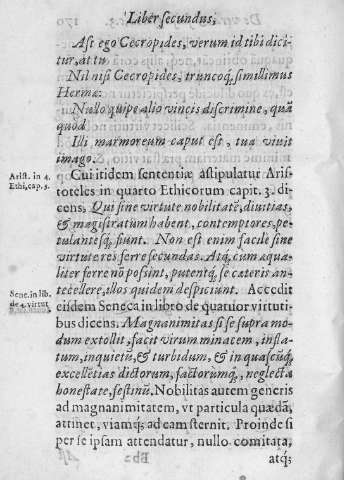 Liber secundus,
Ast ego Cecropides, verum id tibi dici
tur, at tu
Nil nisi Cecropides, truncoq́; simillimus
Hermæ:
Nullo quipe alio vincis discrimine, quā
quod
Illi marmoreum caput est, tua vivit
imago.
Arist. in 4.
Ethi, cap. 3.
Cui itidem sententiæ astipulatur Aris-
toteles in quarto Ethicorum capit. 3. di-
cens, Qui sine virtute nobilitatē, divitias,
& magistratum habent, contemptores, pe-
tulantesq́; fiunt. Non est enim facile sine
virtute res ferre secundas. Atq́; cum æqua-
liter ferre nō possint, putentq́; se cateris an-
tecellere, illos quidem despiciunt. Accedit
Sene. in lib.
de 4. virtut.
eisdem Seneca in libro de quatuor virtuti-
bus dicens. Magnanimitas si se supra mo-
dum extollit, facit virum minacem, infla-
tum, inquietū, & turbidum, & in quascūq́;
excellētias dictorum, factorūmq́;, neglecta
honestate, festinū. Nobilitas autem generis
ad magnanimitatem, vt particula quædā,
attinet, viamq́; ad eam sternit. Proinde si
per se ipsam attendatur, nullo comitata,
Bb 2
atq́;